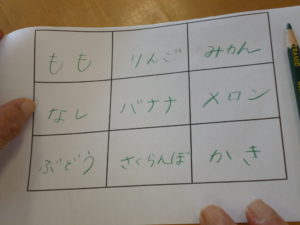 もも りんご みかん
なし バナナ メロン
ぶどう さくらんぼ かき